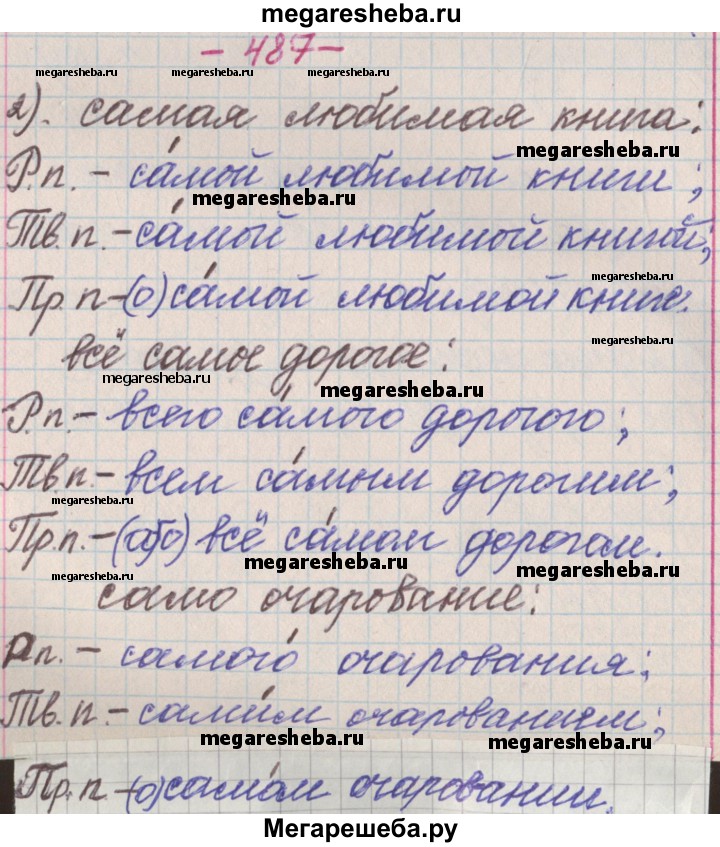 megaresheba.ru
- 487 -
megaresheba.ru megaresheba.ru megaresheba.ru
2). самая любимая книга:
megaresheba.ru
Р.п. - са́мой любимой книги;
megaresheba.ru
Тв.п. - са́мый любимой книгой;
megaresheba.ru
Пр.п - (о) са́мой любимой книге.
megaresheba.ru
всё самое дорогое:
megaresheba.ru
megaresheba.ru
Р.п. - всего са́мого дорогого;
Тв.п. - всем са́мым дорогим;
megaresheba.ru
Пр.п. - (обо) всё са́мом дорогом.
megaresheba.ru
megaresheba.ru megaresheba.ru
само очарование:
Рп. - самого́ очарования;
Тв.п. - сами́м очарованием;
megaresheba.ru megaresheba.ru
Пр.п - (о) само́м очаровании.
Мегарешеба.ру